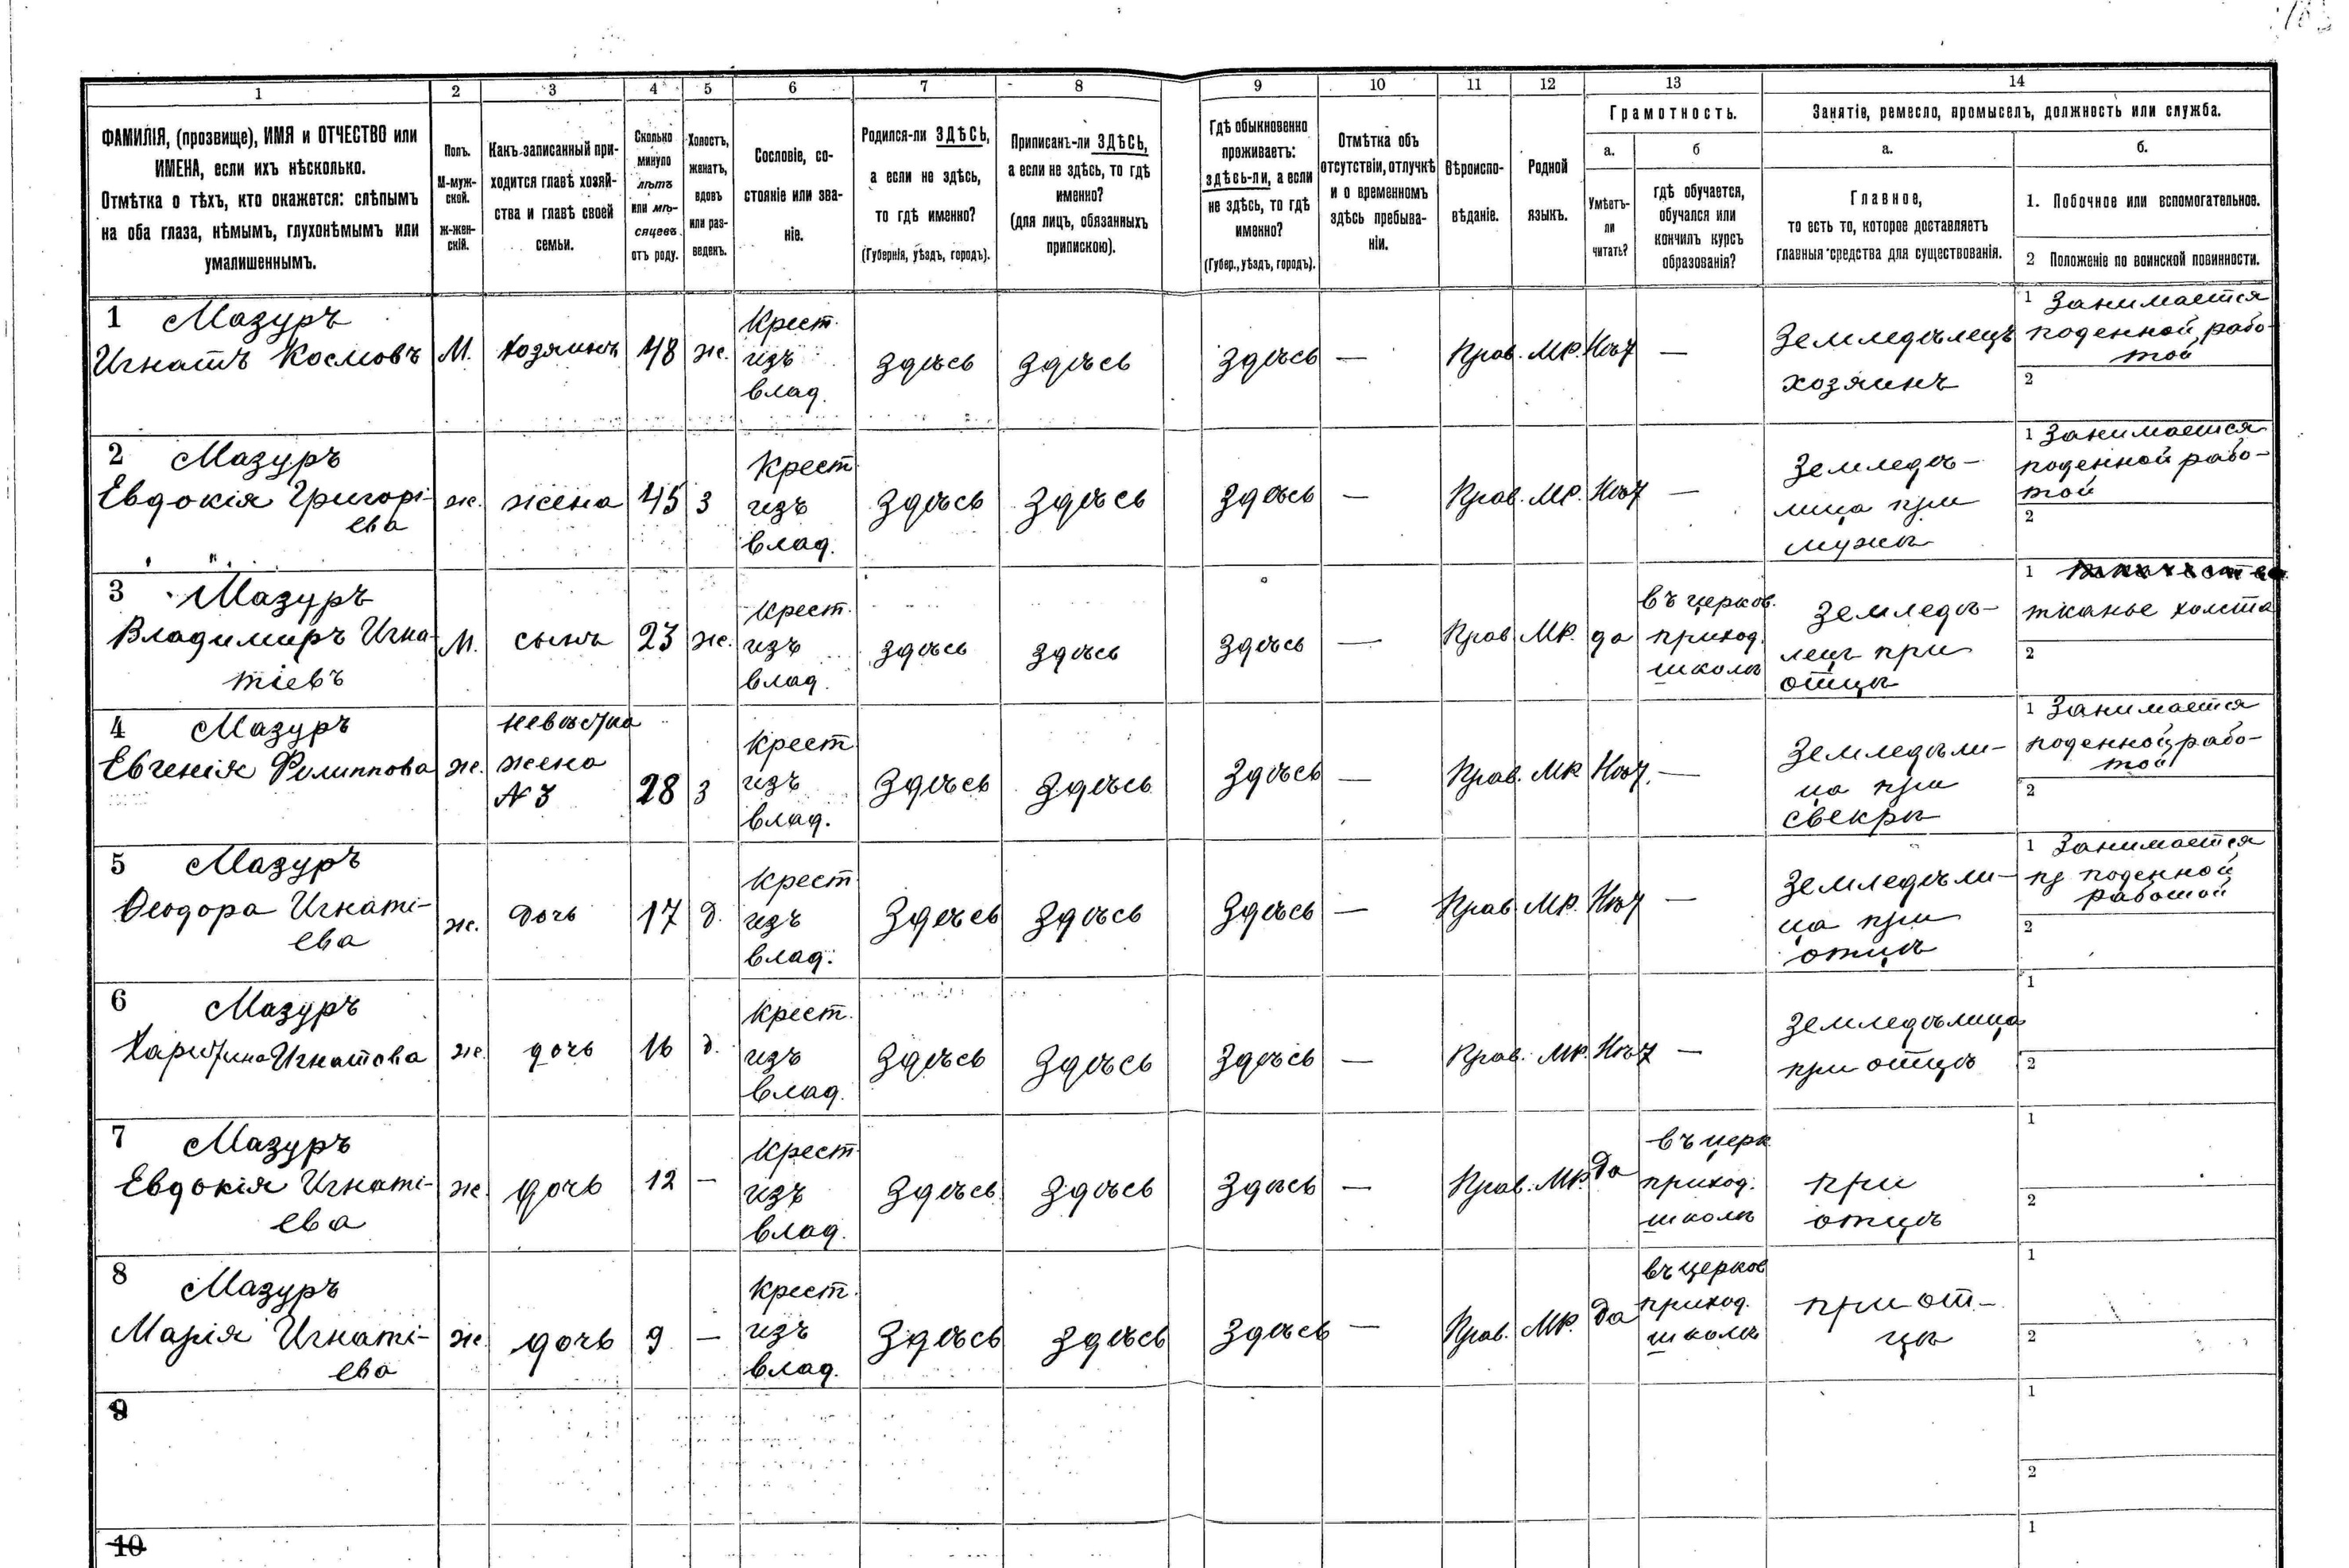 1
2
3
4
5
6
7
8
9
10
11
12
13
14
ФАМИЛІЯ, (прозвище), ИМЯ и ОТЧЕСТВО или
ИМЕНА, если ихъ нѣсколько.
Отмѣтка о тѣхъ, кто окажется: слѣпымъ
на оба глаза, нѣмымъ, глухонѣмымъ или
умалишеннымъ.
Полъ.
М-муж-
ской.
ж-жен-
скій.
Какъ записанный при-
ходится главѣ хозяй-
ства и главѣ своей
семьи.
Сколько
минуло
лѣтъ
или мѣ-
сяцевъ
отъ роду.
Холостъ,
женатъ,
вдовъ
или раз-
веденъ.
Сословіе, со-
стояніе или зва-
ніе.
Родился-ли ЗДѢСЬ,
а если не здѣсь,
то гдѣ именно?
(Губернія, уѣздъ, городъ).
Приписанъ-ли ЗДѢСЬ,
а если не здѣсь, то гдѣ
именно?
(для лицъ, обязанныхъ
припискою).
Гдѣ обыкновенно
проживаетъ:
здѣсь-ли, а если
не здѣсь, то гдѣ
именно?
(Губер., уѣздъ, городъ).
Отмѣтка объ
отсутствіи, отлучкѣ
и о временномъ
здѣсь пребыва-
ніи.
Вѣроиспо-
вѣданіе.
Родной
языкъ.
Грамотность.
а.
Умѣетъ-
ли
читать?
б
гдѣ обучается,
обучался или
кончилъ курсъ
образованія?
Занятіе, ремесло, промыселъ, должность или служба.
а.
Главное,
то есть то, которое доставляетъ
главныя средства для существованія.
б.
1. Побочное или вспомогательное.
2 Положеніе по воинской повинности.
1 Мазуръ
Игнатъ Космовъ
М.
хозяинъ
48
ж.
Крест.
изъ
влад.
здѣсь
здѣсь
здѣсь
—
Прав.
МР.
Нѣт
—
Земледѣлецъ
хозяинъ
1 Занимается
поденной рабо-
той
2
2 Мазуръ
Евдокія Григорі-
ева
ж.
жена
45
З
Крест
изъ
влад.
Здѣсь
Здѣсь
Здѣсь
—
Прав.
МР.
Нѣт
—
Земледѣ-
лица при
мужѣ
1 Занимается
поденной рабо-
той
2
3 Мазуръ
Владимиръ Игна-
тіевъ
М.
сынъ
23
ж.
Крест.
изъ
влад.
здѣсь
здѣсь
здѣсь
—
Прав
МР.
да
въ церков.
приход.
школѣ
Земледѣ-
лецъ при
отцѣ
1
тканье холста
2
4 Мазуръ
Евгенія Филиппова
ж.
невѣстка
жена
№ 3
28
З
Крест
изъ
влад.
Здѣсь
Здѣсь
Здѣсь
—
Прав.
МР
Нѣт.
—
Земледѣли-
ца при
свекрѣ
1 Занимается
поденной рабо-
той
2
5 Мазуръ
Ѳеодора Игнаті-
ева
ж.
Дочь
17
д.
Крест
изъ
влад.
Здѣсь
Здѣсь
Здѣсь
—
Прав
МР.
Нѣт
—
Земледѣли-
ца при
отцѣ
1 Занимается
поденной
работой
2
6 Мазуръ
Харитина Игнатова
ж.
дочь
16
д.
Крест.
изъ
влад.
Здѣсь
Здѣсь
Здѣсь
—
Прав.
МР.
Нѣт
—
Земледѣлица
при отцѣ
1
2
7 Мазуръ
Евдокія Игнаті-
ева
ж.
дочь
12
—
Крест
изъ
влад.
Здѣсь
Здѣсь
Здѣсь
—
Прав.
МР.
Да
въ церк
приход.
школѣ
при
отцѣ
1
2
8 Мазуръ
Марія Игнаті-
ева
ж
дочь
9
—
Крест.
изъ
влад.
Здѣсь
Здѣсь
Здѣсь
—
Прав.
МР.
Да
въ церков
приход.
школѣ
при от-
цѣ
1
2
9
1
2
10
1